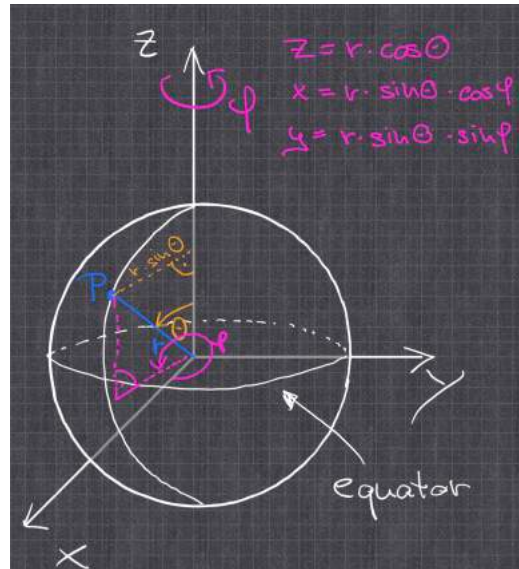 Z
z = r · cosΘ
φ
x = r · sinΘ · cosφ
y = r · sinΘ · sinφ
r sinΘ
P
Θ
r
φ
y
equator
x